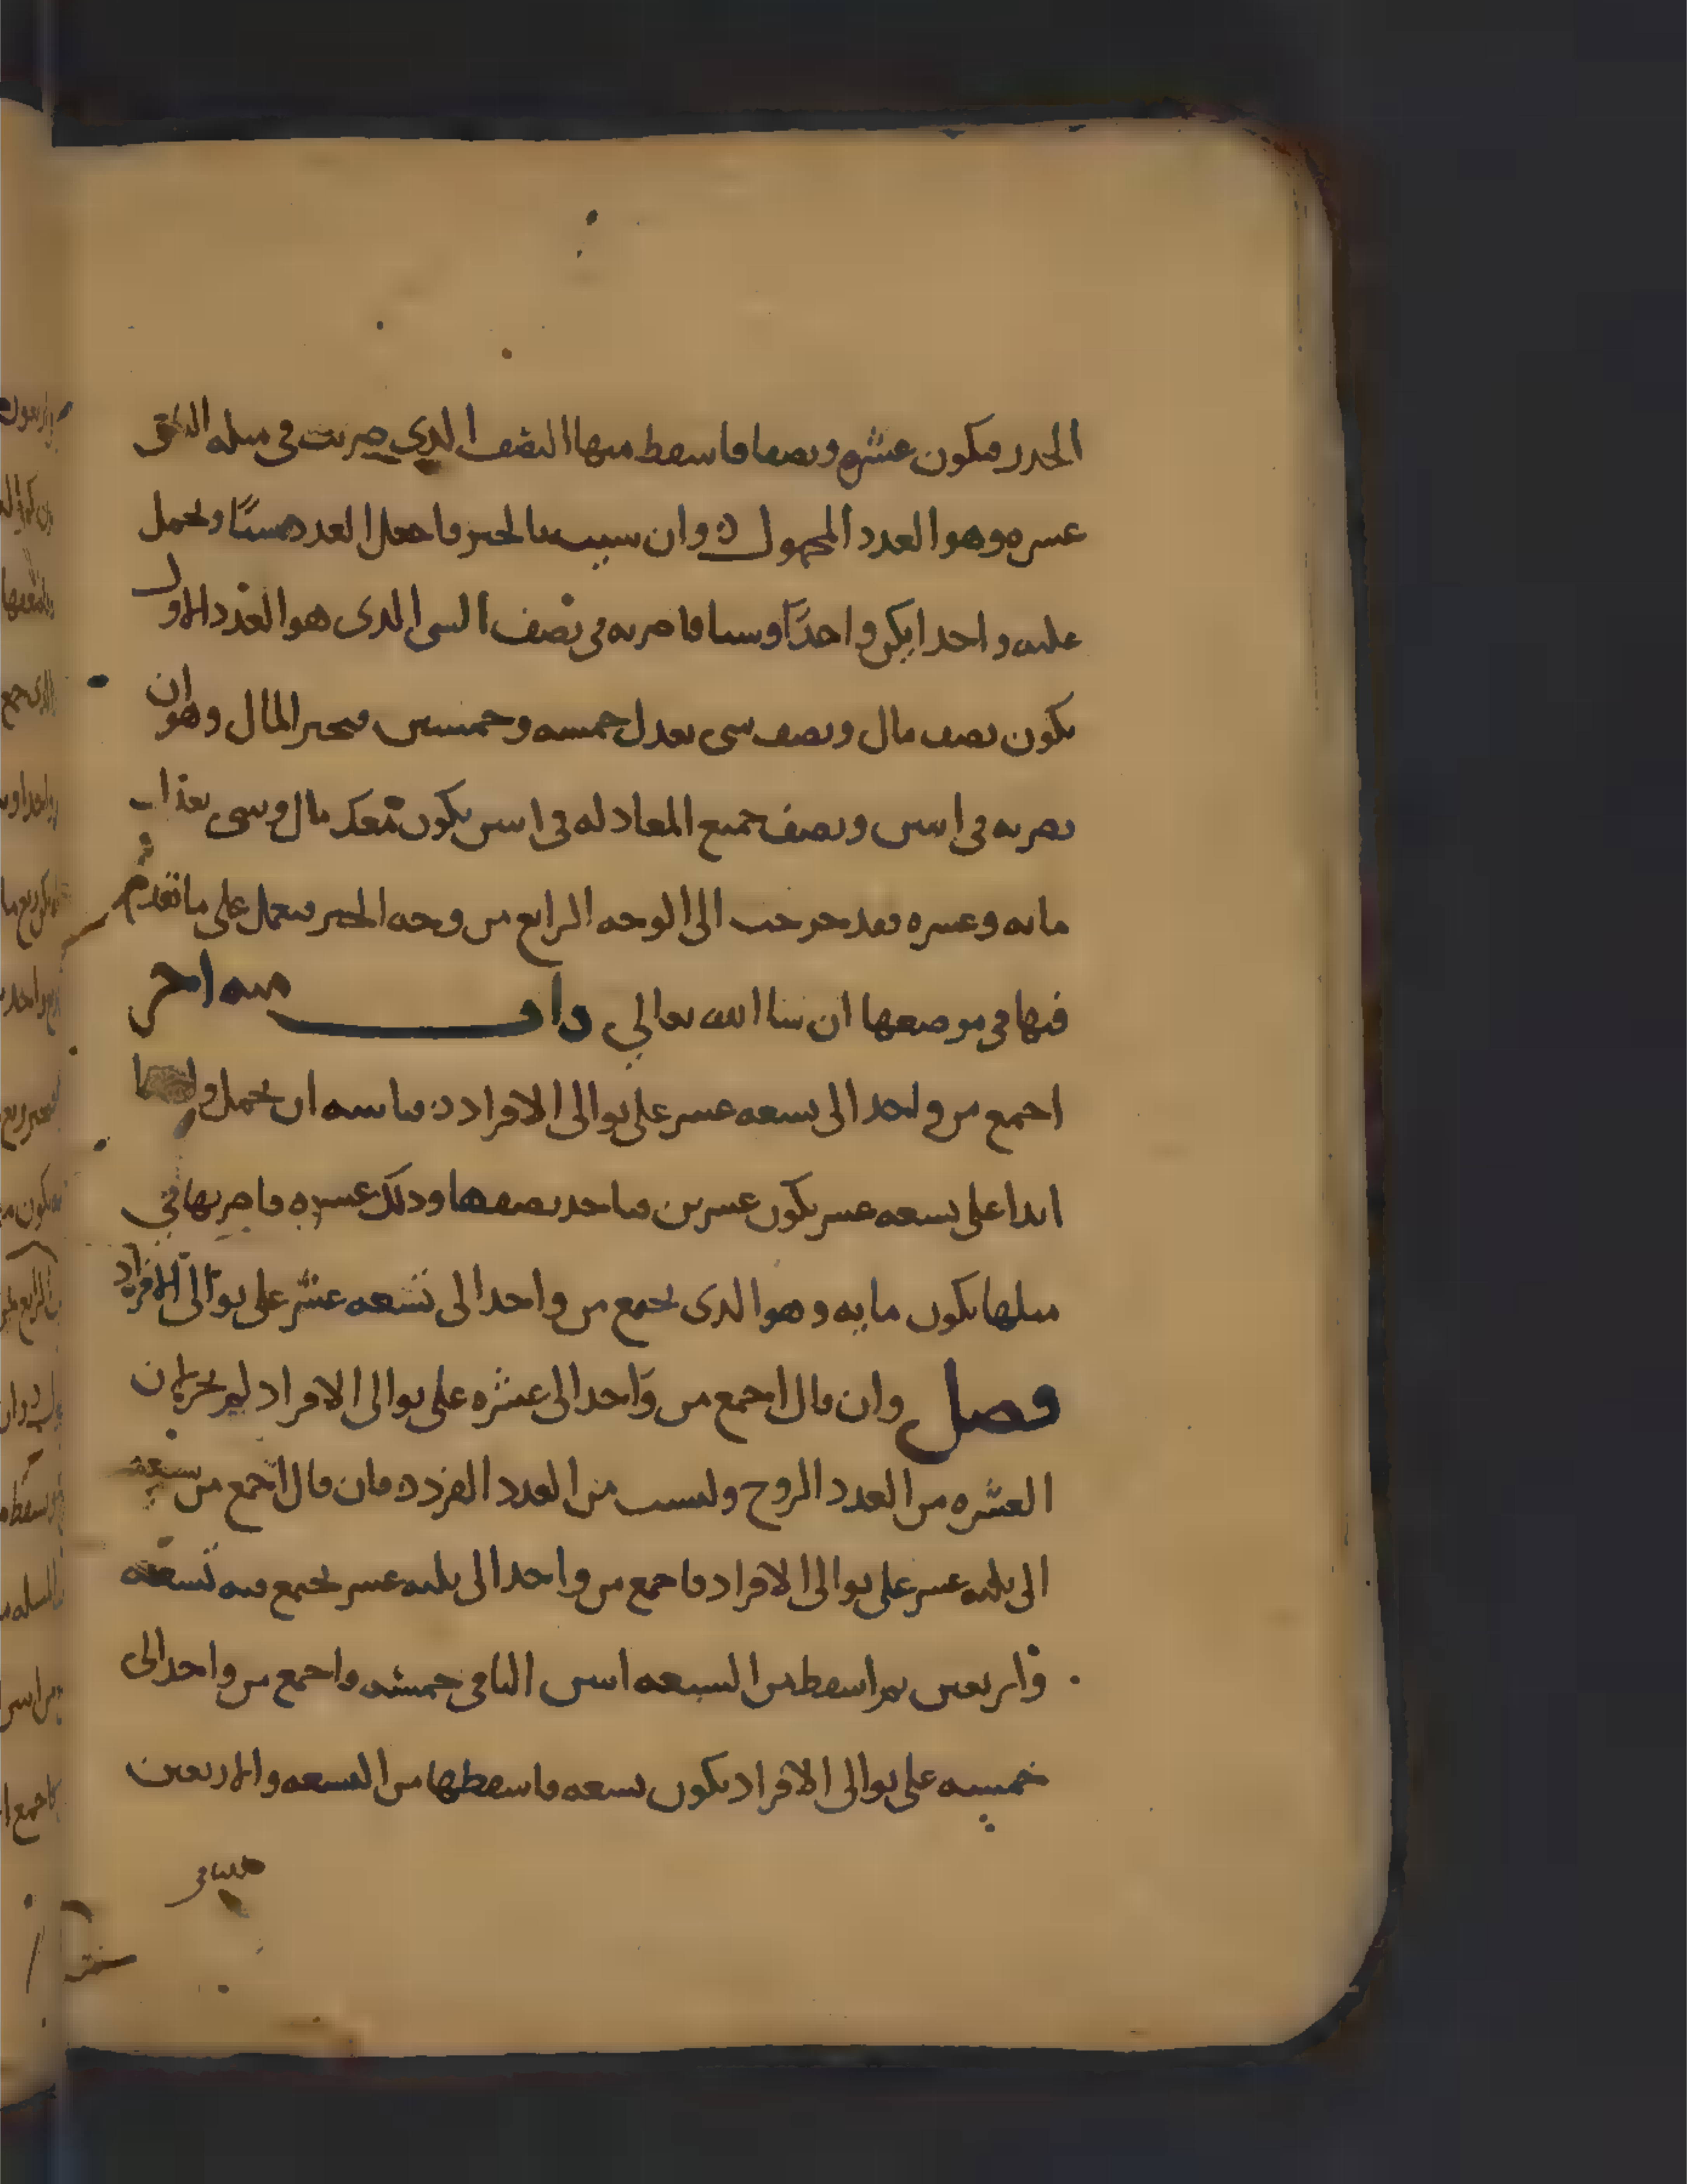 الجذر فيكون عشره ونصفا فاسقط منها النصف الذي ضربت في مثله الباقي
عشره وهو العدد المجهول ن وان سيت بالجبر فاجعل العدد شيئًا وتحمل
عليه واحدا يكن واحدًا وشيا فاضربه في نصف الشي الذي هو العدد الاول
يكون نصف مال ونصف شي يعدل خمسه وخمسين فتجبر المال وهو ان
تضربه في اثنين وتضرب جميع المعادله في اثنين يكون معك مال وشي يعدلن
مايه وعشره فقد خرجت الى الوجه الرابع من وجه الجبر فتعمل على ما تقدم
فيها في موضعها ان شا الله تعالى باب منه اخر
اجمع من واحد الى تسعه عشر على توالي الافراد ن قياسه ان تحمل واحدا
ابدا على تسعه عشر يكون عشرين فتاخذ نصفها وذلك عشره فاضربها في
مثلها يكون مايه وهو الذي يجمع من واحد الى تسعه عشر على توالي الافراد
فصل وان قال اجمع من واحد الى عشره على توالي الافراد لم يجز لان
العشره من العدد الزوج وليست من العدد الفرد ه فان قال اجمع من سبعه
الى ثلثه عشر على توالي الافراد فاجمع من واحد الى ثلثه عشر يجتمع فيه تسعه
واربعين ثم اسقط من السبعه اثنين الباقي خمسه واجمع من واحد الى
خمسه على توالي الافراد يكون تسعه فاسقطها من التسعه والاربعين
فيبقى